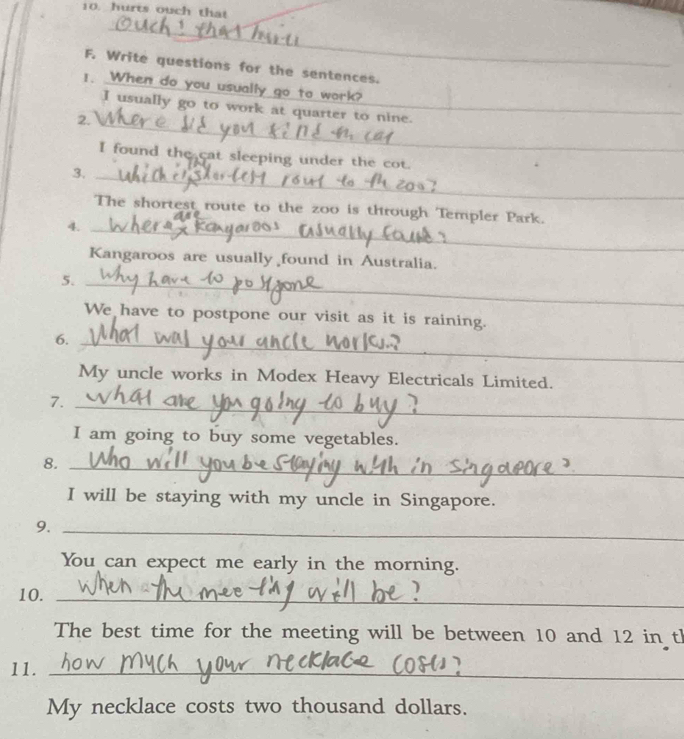 10. hurts ouch that
Ouch! that hurts
F. Write questions for the sentences.
1. When do you usually go to work?
I usually go to work at quarter to nine.
2. Where did you find the cat
I found the cat sleeping under the cot.
3. which is the shortest rout to the zoo?
The shortest route to the zoo is through Templer Park.
4. where are kangaroos usually found?
Kangaroos are usually found in Australia.
5. why have to postpone
We have to postpone our visit as it is raining.
6. What was your uncle works?
My uncle works in Modex Heavy Electricals Limited.
7. what are you going to buy?
I am going to buy some vegetables.
8. Who will you be staying with in singapore?
I will be staying with my uncle in Singapore.
9.
You can expect me early in the morning.
10. when the meeting will be?
The best time for the meeting will be between 10 and 12 in
11. how much your necklace costs?
My necklace costs two thousand dollars.